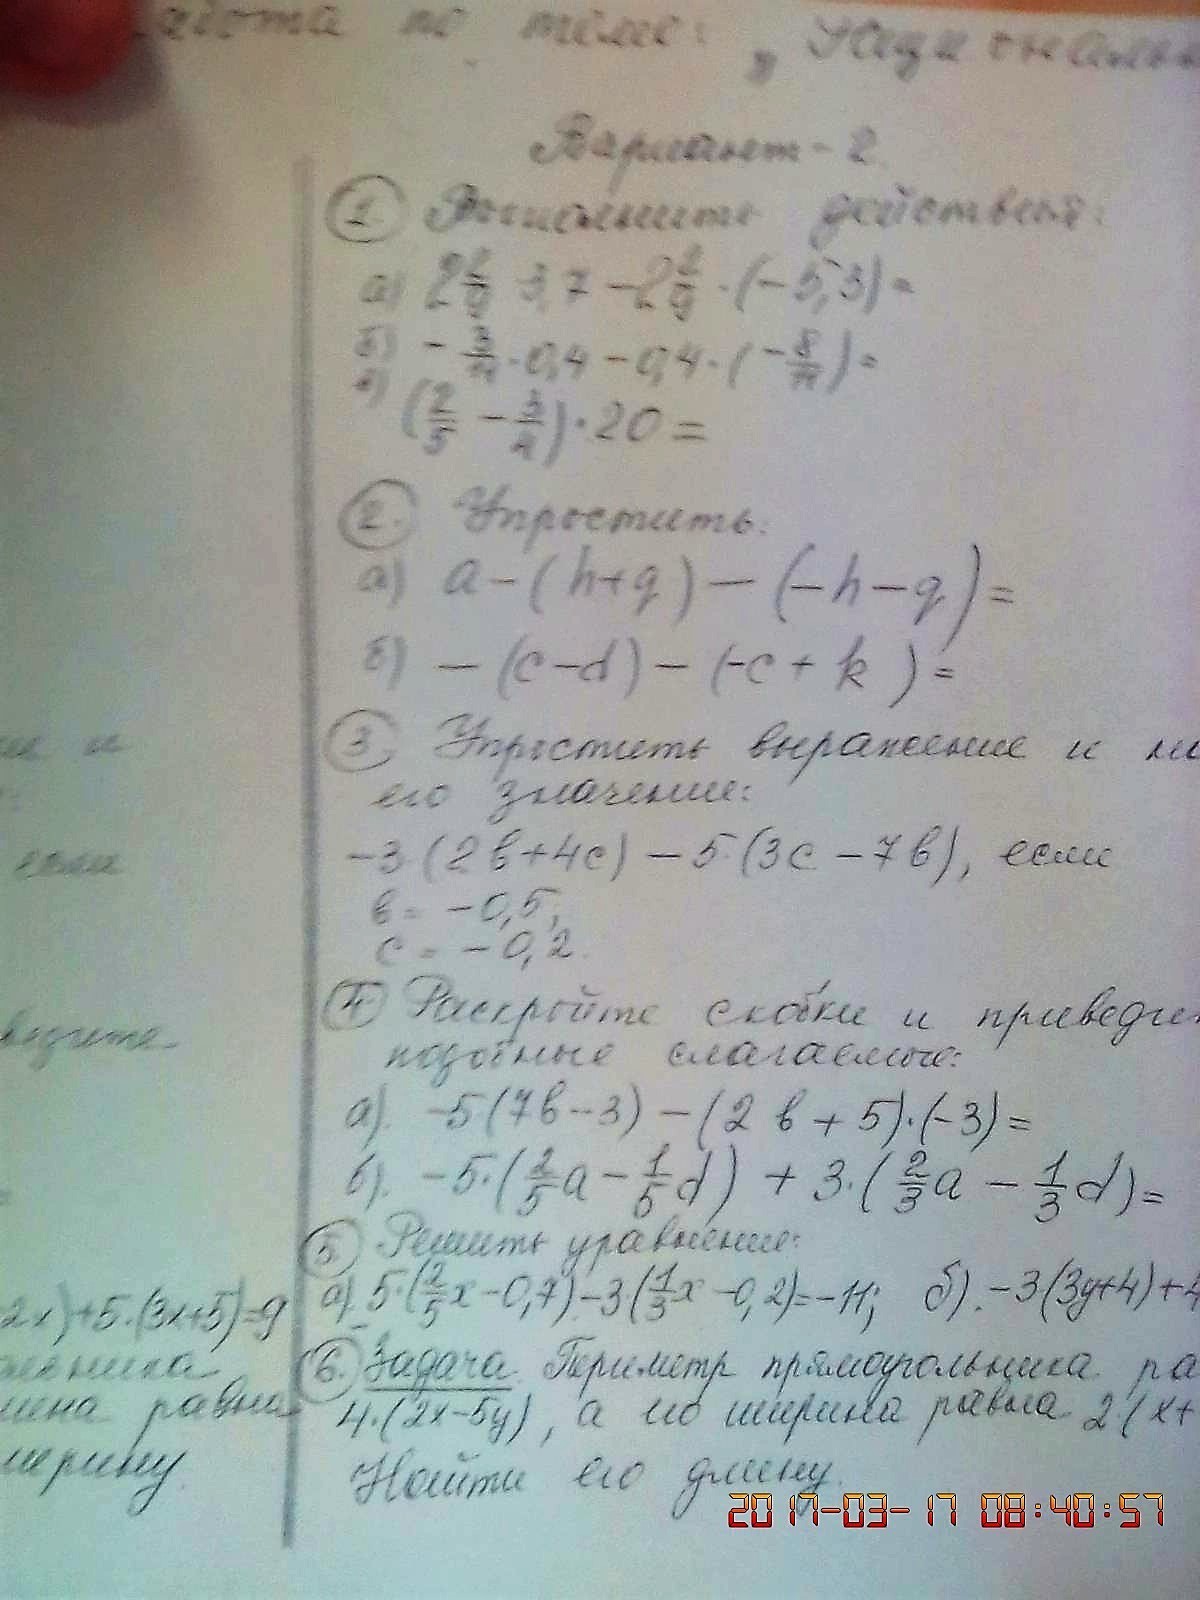 по теме: „
Вариант - 2.
1. действия:
а) 2 2/9 · 3,7 - 2 2/9 · (-5,3) =
б) - 3/11 · 0,4 - 0,4 · (- 8/11) =
в) (2/5 - 3/4) · 20 =
2. Упростить:
а) a - (h+q) - (-h-q) =
б) - (c-d) - (-c + k) =
3. Упростить выражение и
его значение:
-3·(2в+4с) - 5·(3с - 7в), если
в = -0,5;
с = -0,2.
4. Раскройте скобки и
подобные слагаемые:
а). -5·(7в-3) - (2в + 5)·(-3) =
б). -5·(2/5a - 1/5d) + 3·(2/3a - 1/3d) =
5. Решить уравнение:
а). 5·(2/5x - 0,7) - 3(1/3x - 0,2) = -11; б). -3(3y+4)+4
6. Задача. Периметр прямоугольника
4·(2x-5y), а его ширина равна 2·(x+
Найти его длину.
и
если
2x)+5·(3x+5)=9
равна
ширину.
2017-03-17 08:40:57